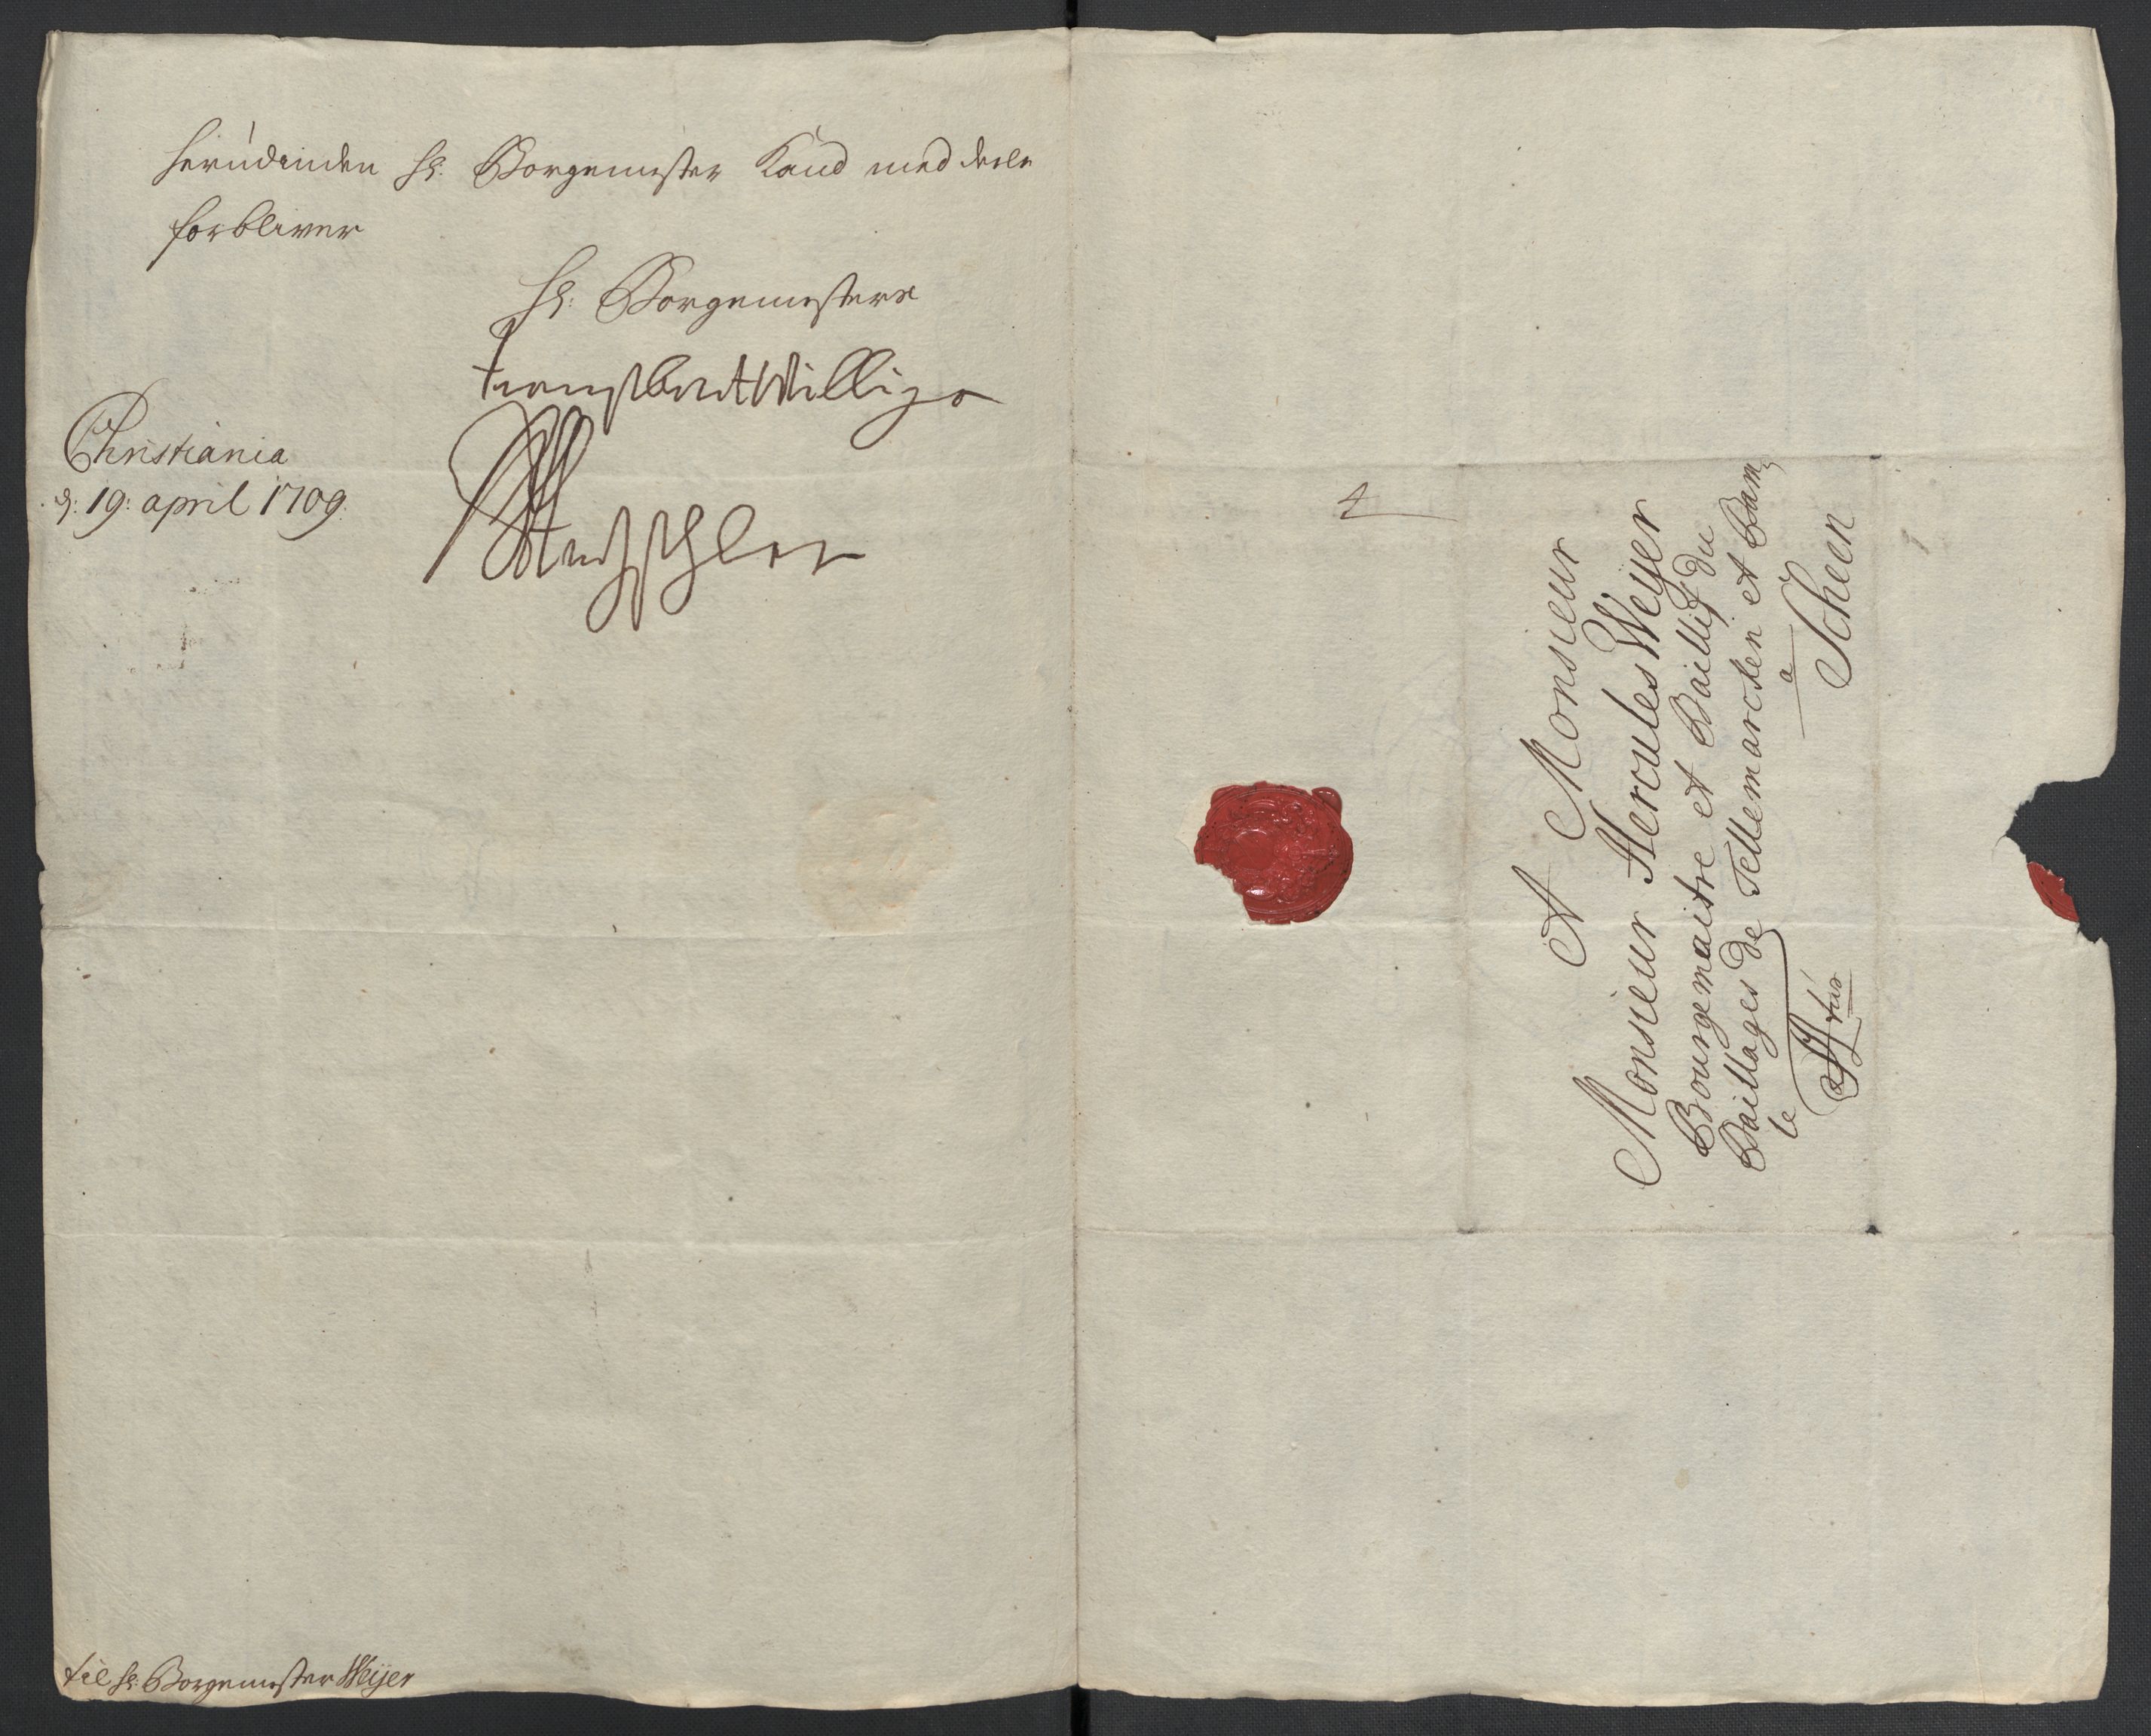 herudinden hr: Borgemester Kand meddeele
forbliver
hr: Borgemesters
tienstberedtvillige
Christiania
d: 19: april 1709.
til hr: Borgemester Weijer
4
A Monsieur
Monsieur Hercules Weijer
Bourgemaitre et Baillif du
Baillages de Tellemarcken et Bam
le
a
Scheen